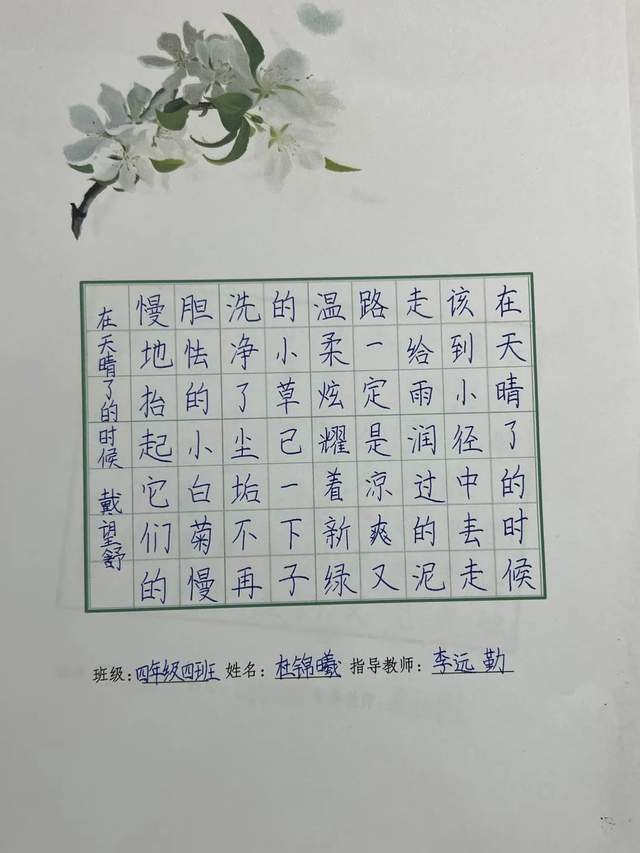 在天晴了的时候
该到小径中去走
走给雨润过的泥
路一定是凉爽又
温柔炫耀着新绿
的小草已一下子
洗净了尘垢不再
胆怯的小白菊慢
慢地抬起它们的
在天晴了的时候 戴望舒
班级:四年级四班 姓名:杜锦曦 指导教师:李远勤